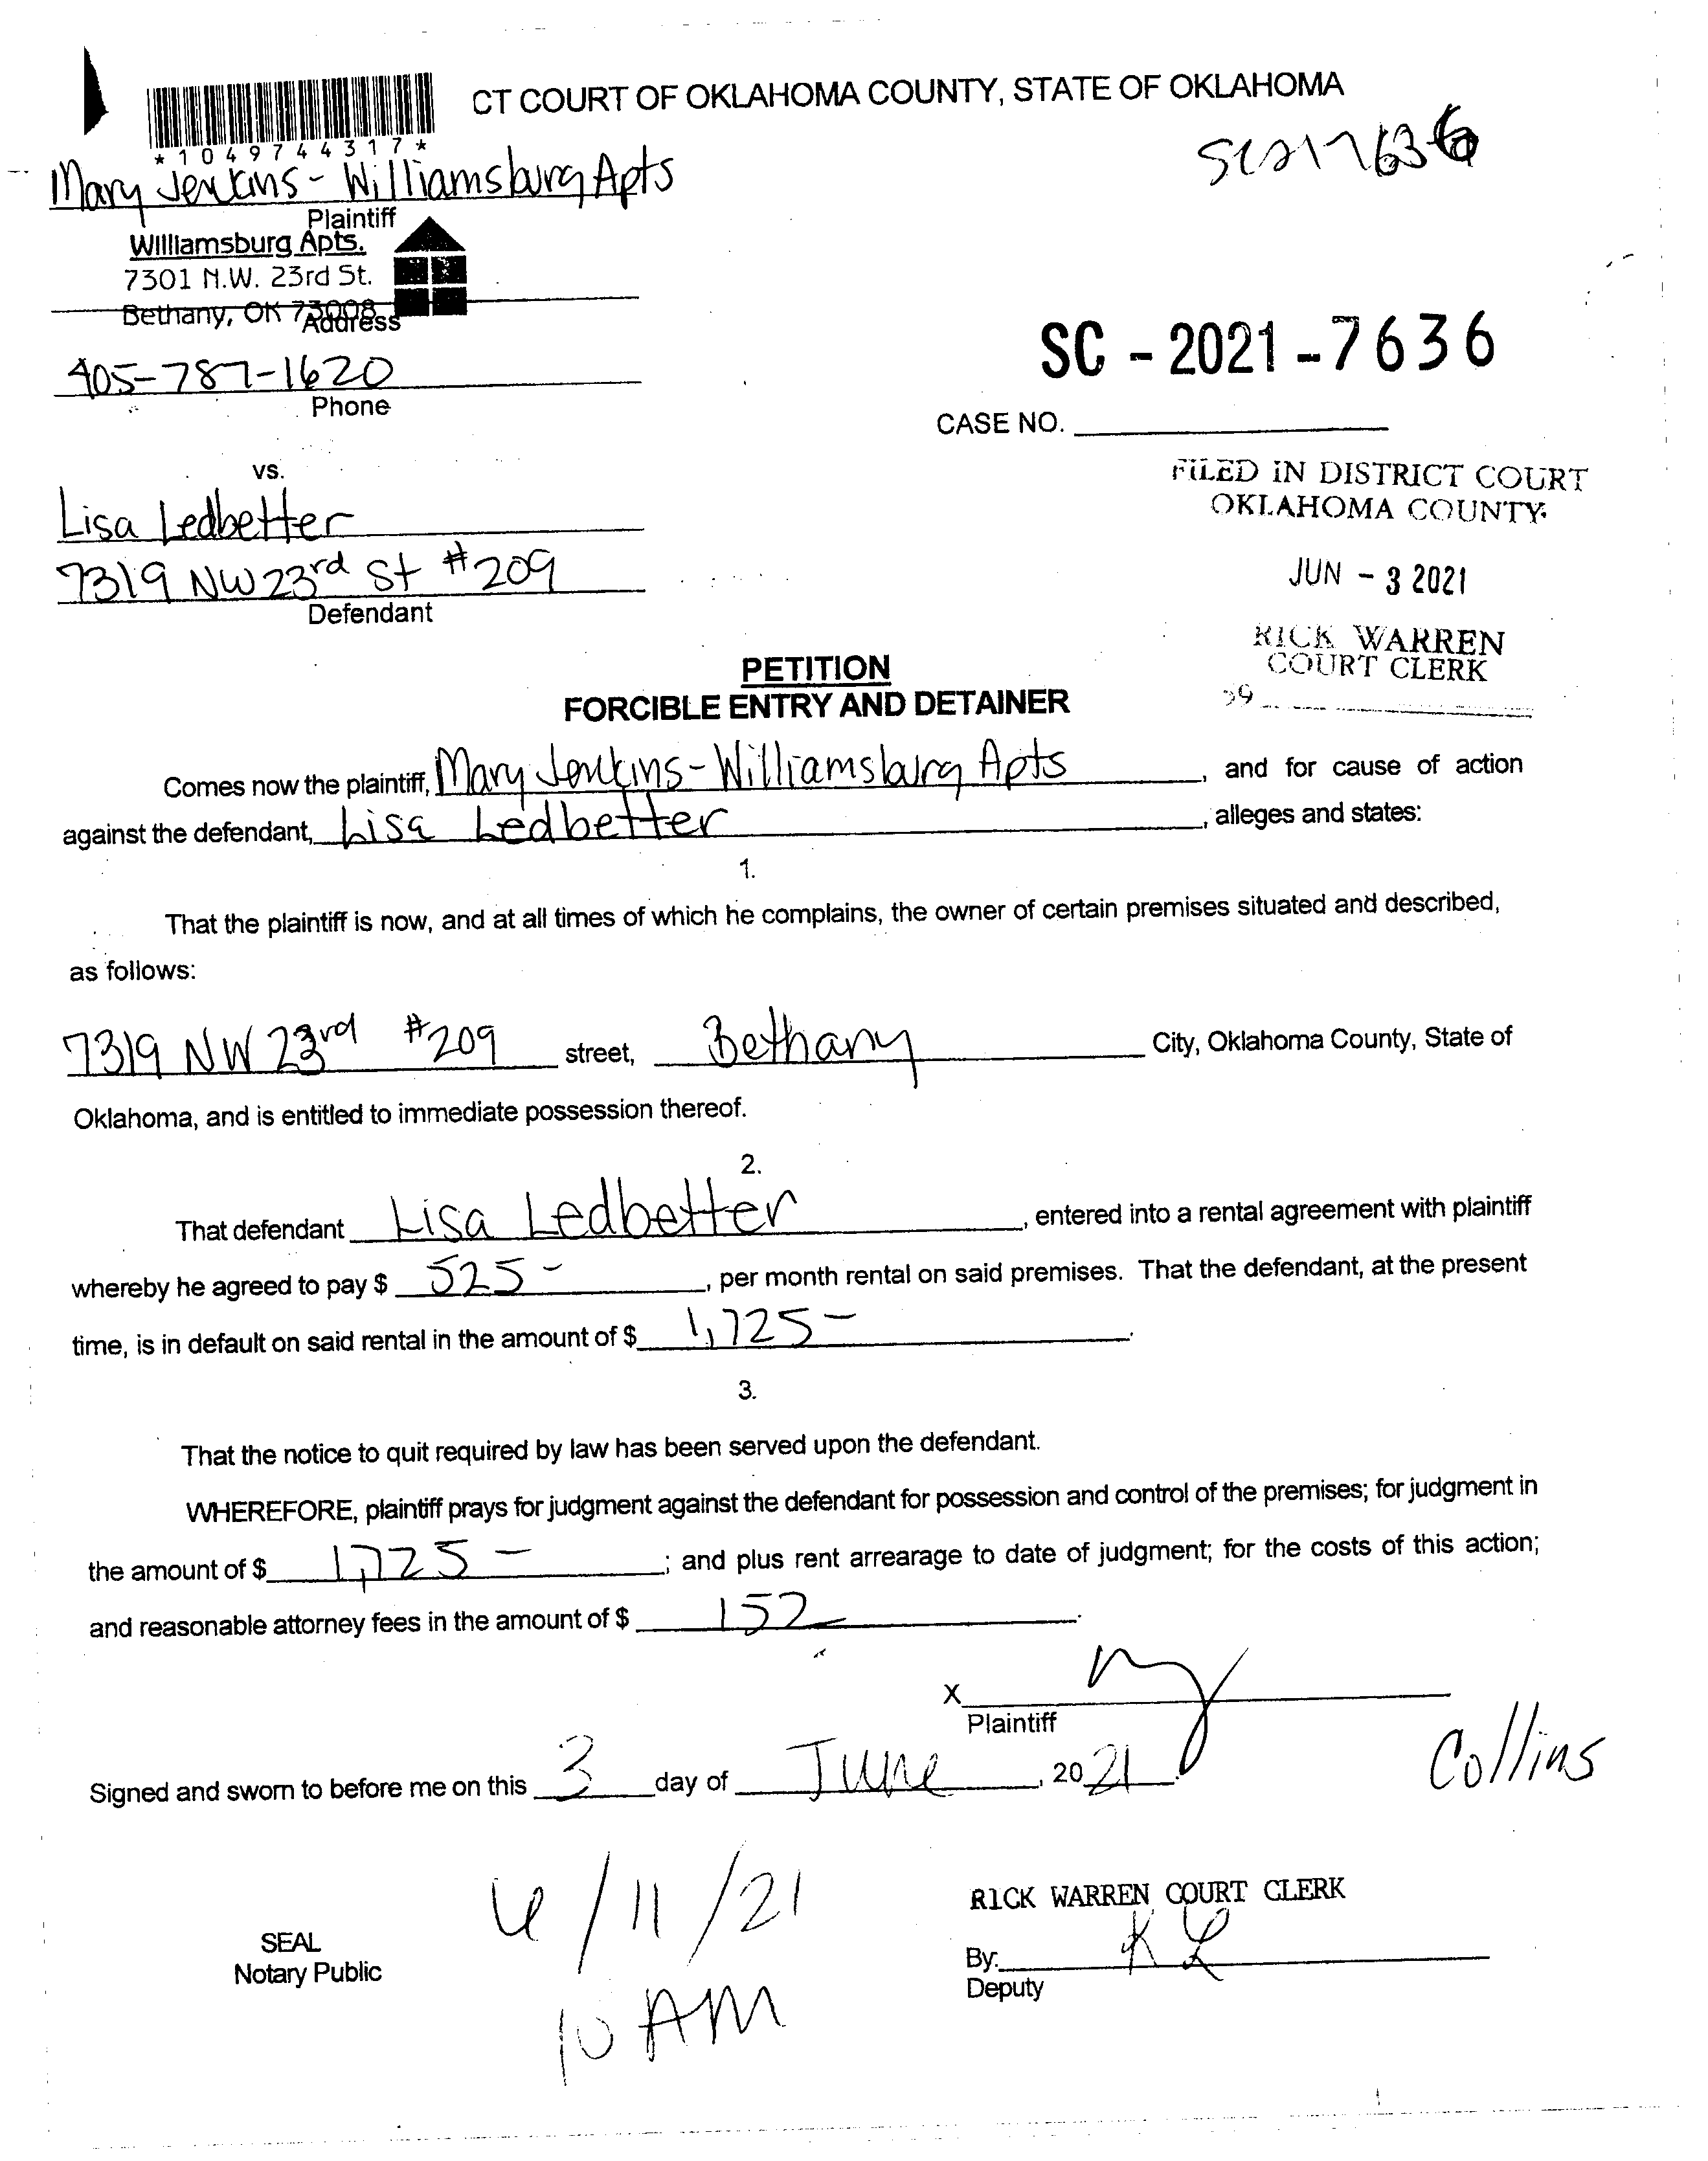 CT COURT OF OKLAHOMA COUNTY, STATE OF OKLAHOMA
*1049744317*
SC217636
Mary Jenkins - Williamsburg Apts
Plaintiff
Williamsburg Apts.
7301 N.W. 23rd St.
Bethany, OK 73008
Address
405-787-1620
Phone
SC - 2021 - 7636
CASE NO.
vs.
FILED IN DISTRICT COURT
OKLAHOMA COUNTY
Lisa Ledbetter
7319 NW 23rd St #209
Defendant
JUN - 3 2021
RICK WARREN
COURT CLERK
39
PETITION
FORCIBLE ENTRY AND DETAINER
Comes now the plaintiff, Mary Jenkins - Williamsburg Apts, and for cause of action
against the defendant, Lisa Ledbetter, alleges and states:
1.
That the plaintiff is now, and at all times of which he complains, the owner of certain premises situated and described,
as follows:
7319 NW 23rd #209 street, Bethany City, Oklahoma County, State of
Oklahoma, and is entitled to immediate possession thereof.
2.
That defendant Lisa Ledbetter, entered into a rental agreement with plaintiff
whereby he agreed to pay $ 525 -, per month rental on said premises. That the defendant, at the present
time, is in default on said rental in the amount of $ 1,725 -.
3.
That the notice to quit required by law has been served upon the defendant.
WHEREFORE, plaintiff prays for judgment against the defendant for possession and control of the premises; for judgment in
the amount of $ 1,725 -; and plus rent arrearage to date of judgment; for the costs of this action;
and reasonable attorney fees in the amount of $ 152.
X
Plaintiff
Collins
Signed and sworn to before me on this 3 day of June, 2021.
6/11/21
10 AM
SEAL
Notary Public
RICK WARREN COURT CLERK
By: KL
Deputy